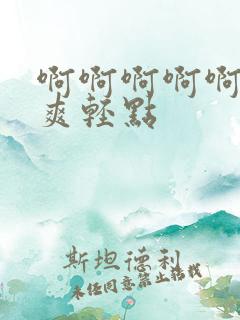 啊啊啊啊啊
爽轻點
斯坦德利
未经同意禁止转载